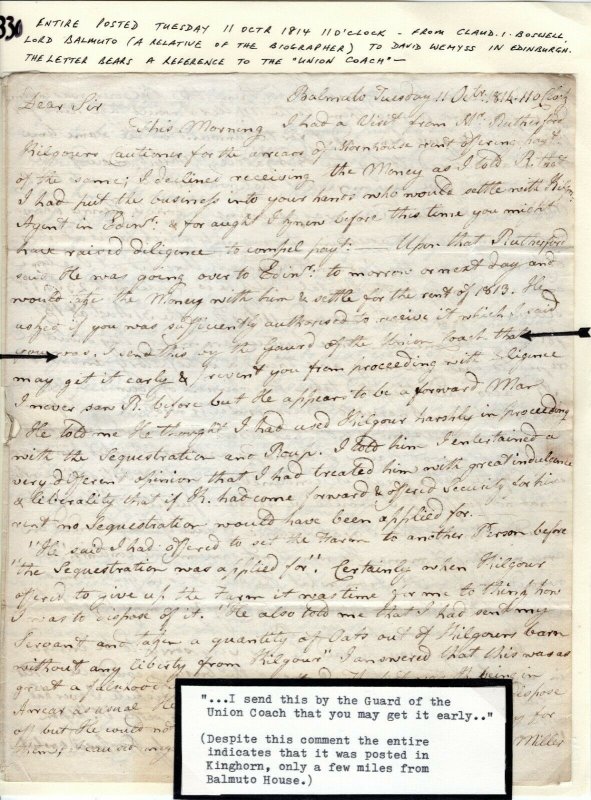 330
ENTIRE POSTED TUESDAY 11 OCTR 1814 11 O'CLOCK - FROM CLAUD. I. BOSWELL,
LORD BALMUTO (A RELATIVE OF THE BIOGRAPHER) TO DAVID WEMYSS IN EDINBURGH.
THE LETTER BEARS A REFERENCE TO THE "UNION COACH" -
Balmuto Tuesday 11 Octr. 1814. 11 oClock
Dear Sir
This Morning I had a Visit from Mr. Rutherford
Kilgours Cautioner for the arrears of rent offering payt.
of the same; I declined receiving the Money as I told
I had put the business into your hands who would settle with
Agent in Edinr. & for aught I know before this time you might
have raised diligence to compel payt. — Upon that Rutherford
said He was going over to Edinr. to morrow or next day and
would take the Money with him & settle for the rent of 1813. He
asked if you was sufficiently authorised to receive it which I said
you was. I send this by the Guard of the Union Coach that
may get it early & prevent you from proceeding with diligence
I never saw R. before but He appears to be a forward Man
He told me He thought I had used Kilgour harshly in proceeding
with the Sequestration and Roup. I told him I entertained a
very different opinion that I had treated him with great indulgence
& liberality that if K. had come forward & offered Security for his
rent no Sequestration would have been applied for.—
"He said I had offered to set the Farm to another Person before
"the Sequestration was applied for". Certainly when Kilgour
offered to give up the Farm it was time for me to think how
I was to dispose of it. "He also told me that I had sent my
Servant and taken a quantity of Oats out of Kilgours barn
without any liberty from Kilgour" I answered that this was as
great a falsehood being in
Arrear as usual He
off but He would not for
"...I send this by the Guard of the
Union Coach that you may get it early.."
(Despite this comment the entire
indicates that it was posted in
Kinghorn, only a few miles from
Balmuto House.)